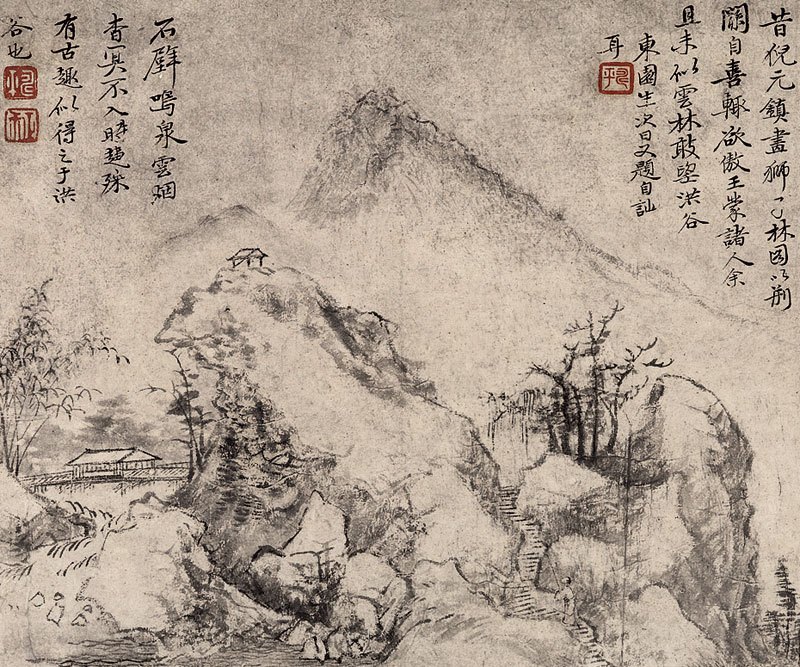 昔倪元鎮畫獅子林因以荆
關自喜輒欲傲王蒙諸人余
且未似雲林敢望洪谷
東園生次日又題自訕
耳
石壁鳴泉雲烟
杳冥不入時趨殊
有古趣似得之于洪
谷也